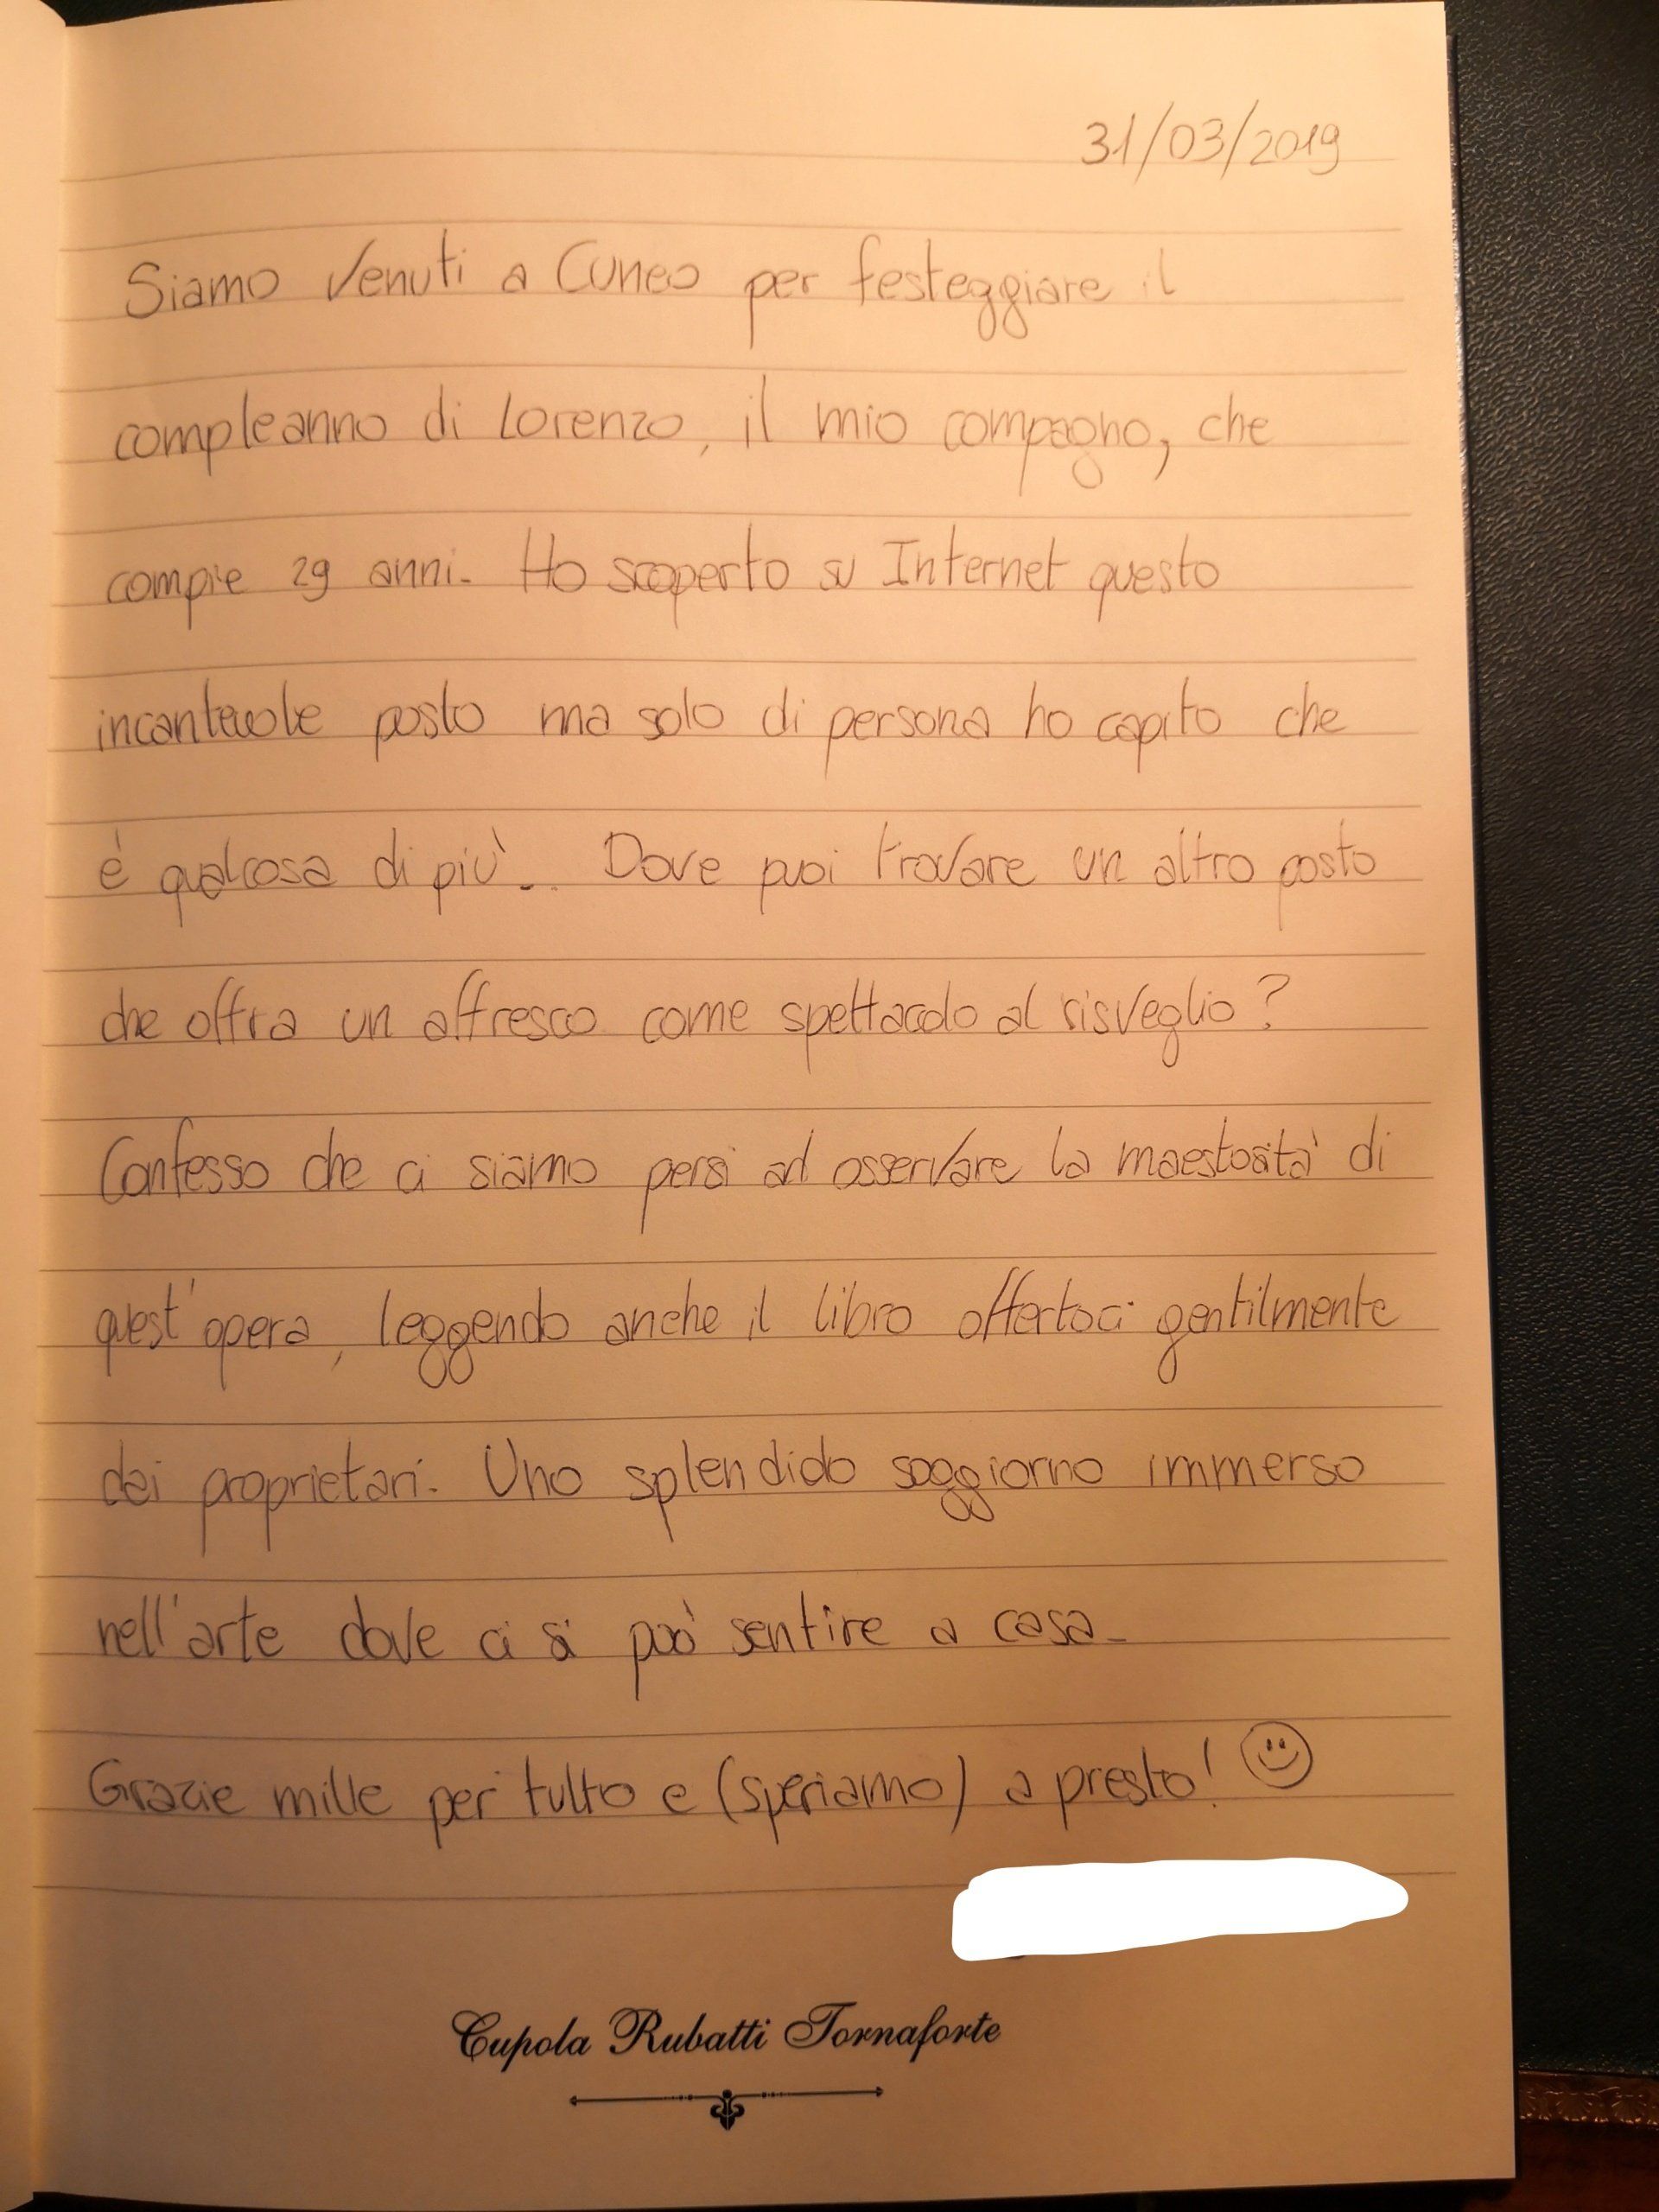 31/03/2019
Siamo venuti a Cuneo per festeggiare il
compleanno di Lorenzo, il mio compagno, che
compie 29 anni. Ho scoperto su Internet questo
incantevole posto ma solo di persona ho capito che
è qualcosa di più... Dove puoi trovare un altro posto
che offra un affresco come spettacolo al risveglio?
Confesso che ci siamo persi ad osservare la maestosità di
quest'opera, leggendo anche il libro offertoci gentilmente
dai proprietari. Uno splendido soggiorno immerso
nell'arte dove ci si può sentire a casa.
Grazie mille per tutto e (speriamo) a presto!
Cupola Rubatti Tornaforte